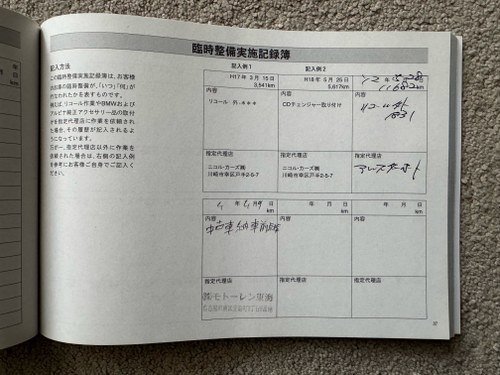 臨時整備実施記録簿
記入方法
この臨時整備実施記録簿は、お客様
のお車の臨時整備が、「いつ」「何」が
行なわれたかを表すものです。
例えば、リコール作業やBMWおよび
アルピナ純正アクセサリー品の取付
けを指定代理店に作業を依頼され
た場合、その履歴が記入されるよ
うになっています。
万が一、指定代理店以外に作業を
依頼された場合は、右側の記入例
を参考にお客様ご自身でご記入く
ださい。
記入例1
H17年 3月 15日
3,541km
内容
リコール 外-***
指定代理店
ニコル・カーズ㈱
川崎市幸区戸手2-6-7
記入例2
H18年 5月 25日
5,617km
内容
CDチェンジャー取り付け
指定代理店
ニコル・カーズ㈱
川崎市幸区戸手2-6-7
11682km
内容
リコール 外
1831
指定代理店
年 月 日
km
内容
中古車納車前
指定代理店
㈱モトーレン東海
年 月 日
km
内容
指定代理店
年 月 日
km
内容
指定代理品